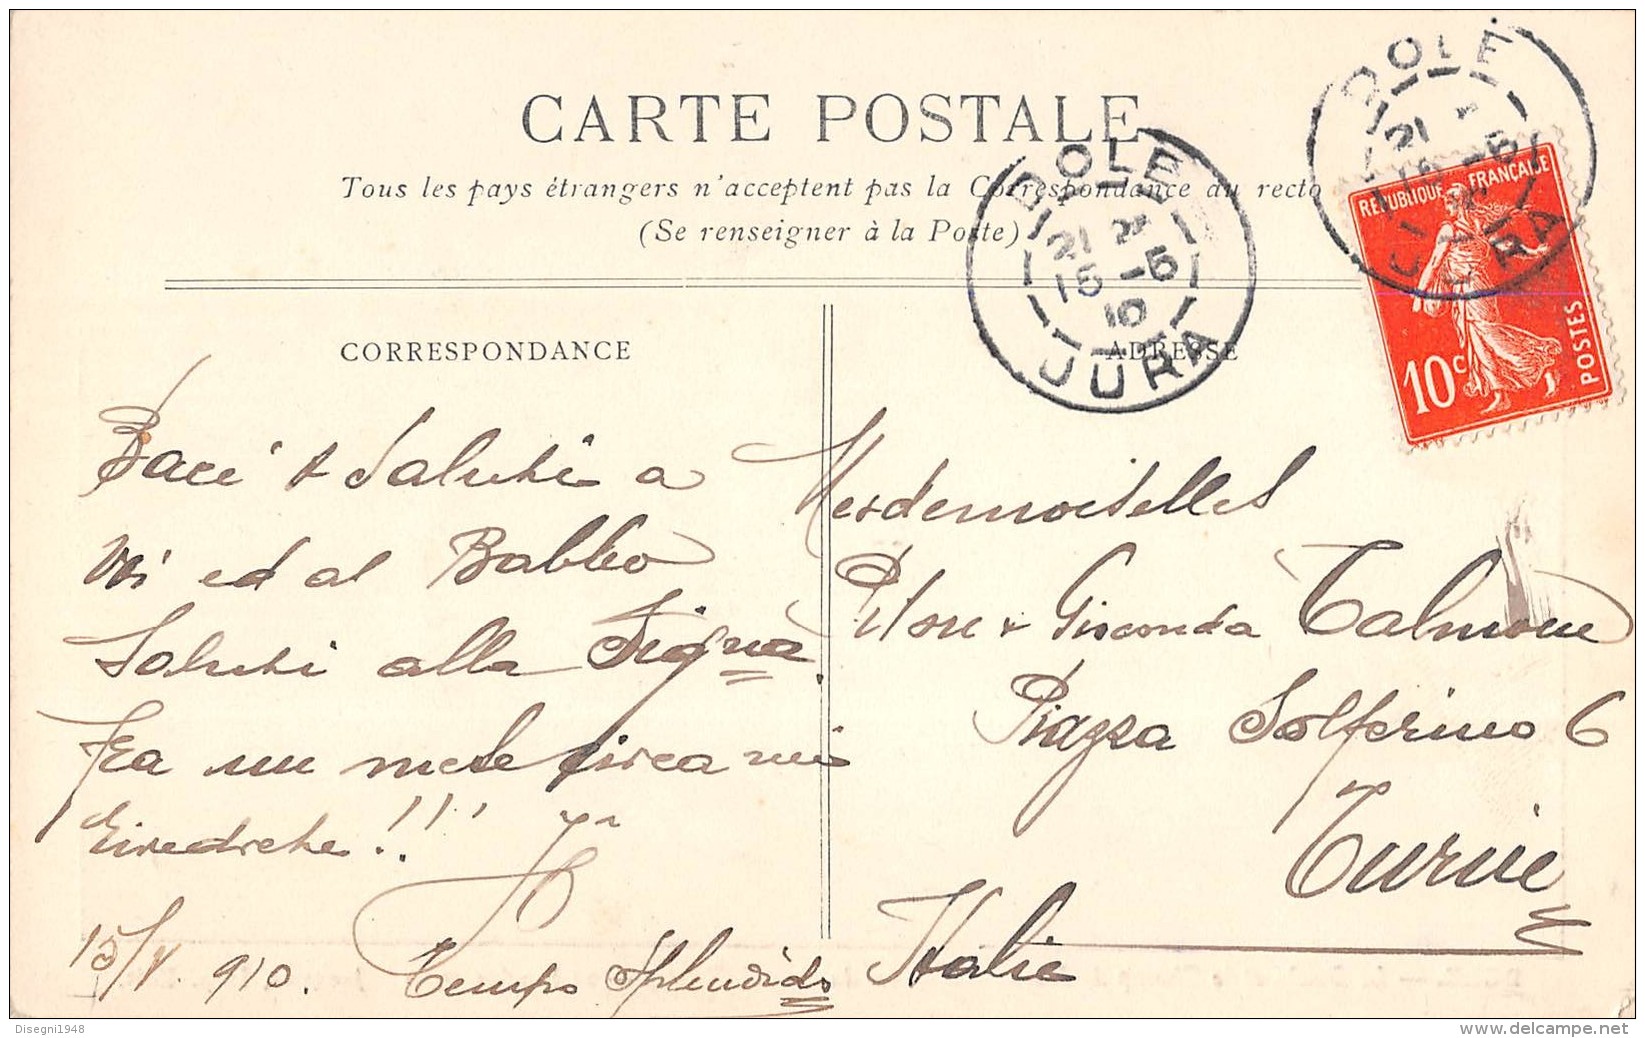 CARTE POSTALE
Tous les pays étrangers n'acceptent pas la Correspondance au recto
(Se renseigner à la Poste)
DOLE
21
15 -5
10
JURA
DOLE
21
JURA
REPUBLIQUE FRANÇAISE
10c
POSTES
CORRESPONDANCE
ADRESSE
Baci & Saluti a
Voi ed al Babbo
Saluti alla Signa.
Fra un mese circa mi
rivedrete!!!!
15/V 910. Tempo Splendido
Mesdemoiselles
& Gioconda Talmone
Piazza Solferino 6
Turin
Italie
Disegni1948
delcampe.net